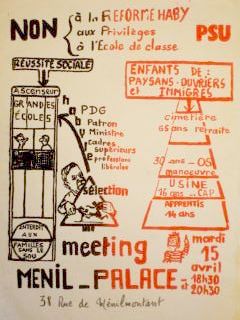 NON
à la REFORME HABY
aux Privilèges
à l'Ecole de classe
PSU
REUSSITE SOCIALE
ASCENSEUR
GRANDES
ÉCOLES
INTERDIT
AUX
FAMILLES
SANS LE
SOU
h
a
b
y
PDG
Patron
Ministre
cadres
supérieurs
professions
libérales
sélection
ENFANTS DE :
PAYSANS-OUVRIERS
et IMMIGRÉS
cimetière
65 ans retraite
30 ans - OS
manoeuvre
USINE
16 ans ... CAP
APPRENTIS
14 ans
meeting
mardi
15
avril
MENIL_PALACE
18H30
20H30
38 Rue de Ménilmontant